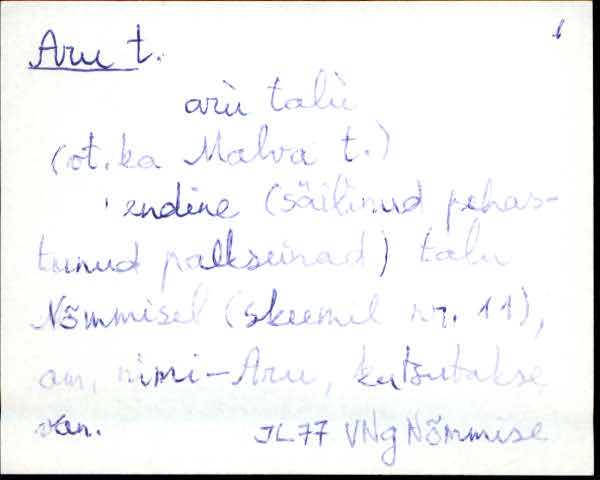 Aru t.
arù talù
(vt. ka Malva t.)
endine (säilinud pehas-
tunud palkseinad) talu
Nõmmisel (skeemil nr. 11),
am. nimi - Aru, kutsutakse
van. JL77 VNg Nõmmise